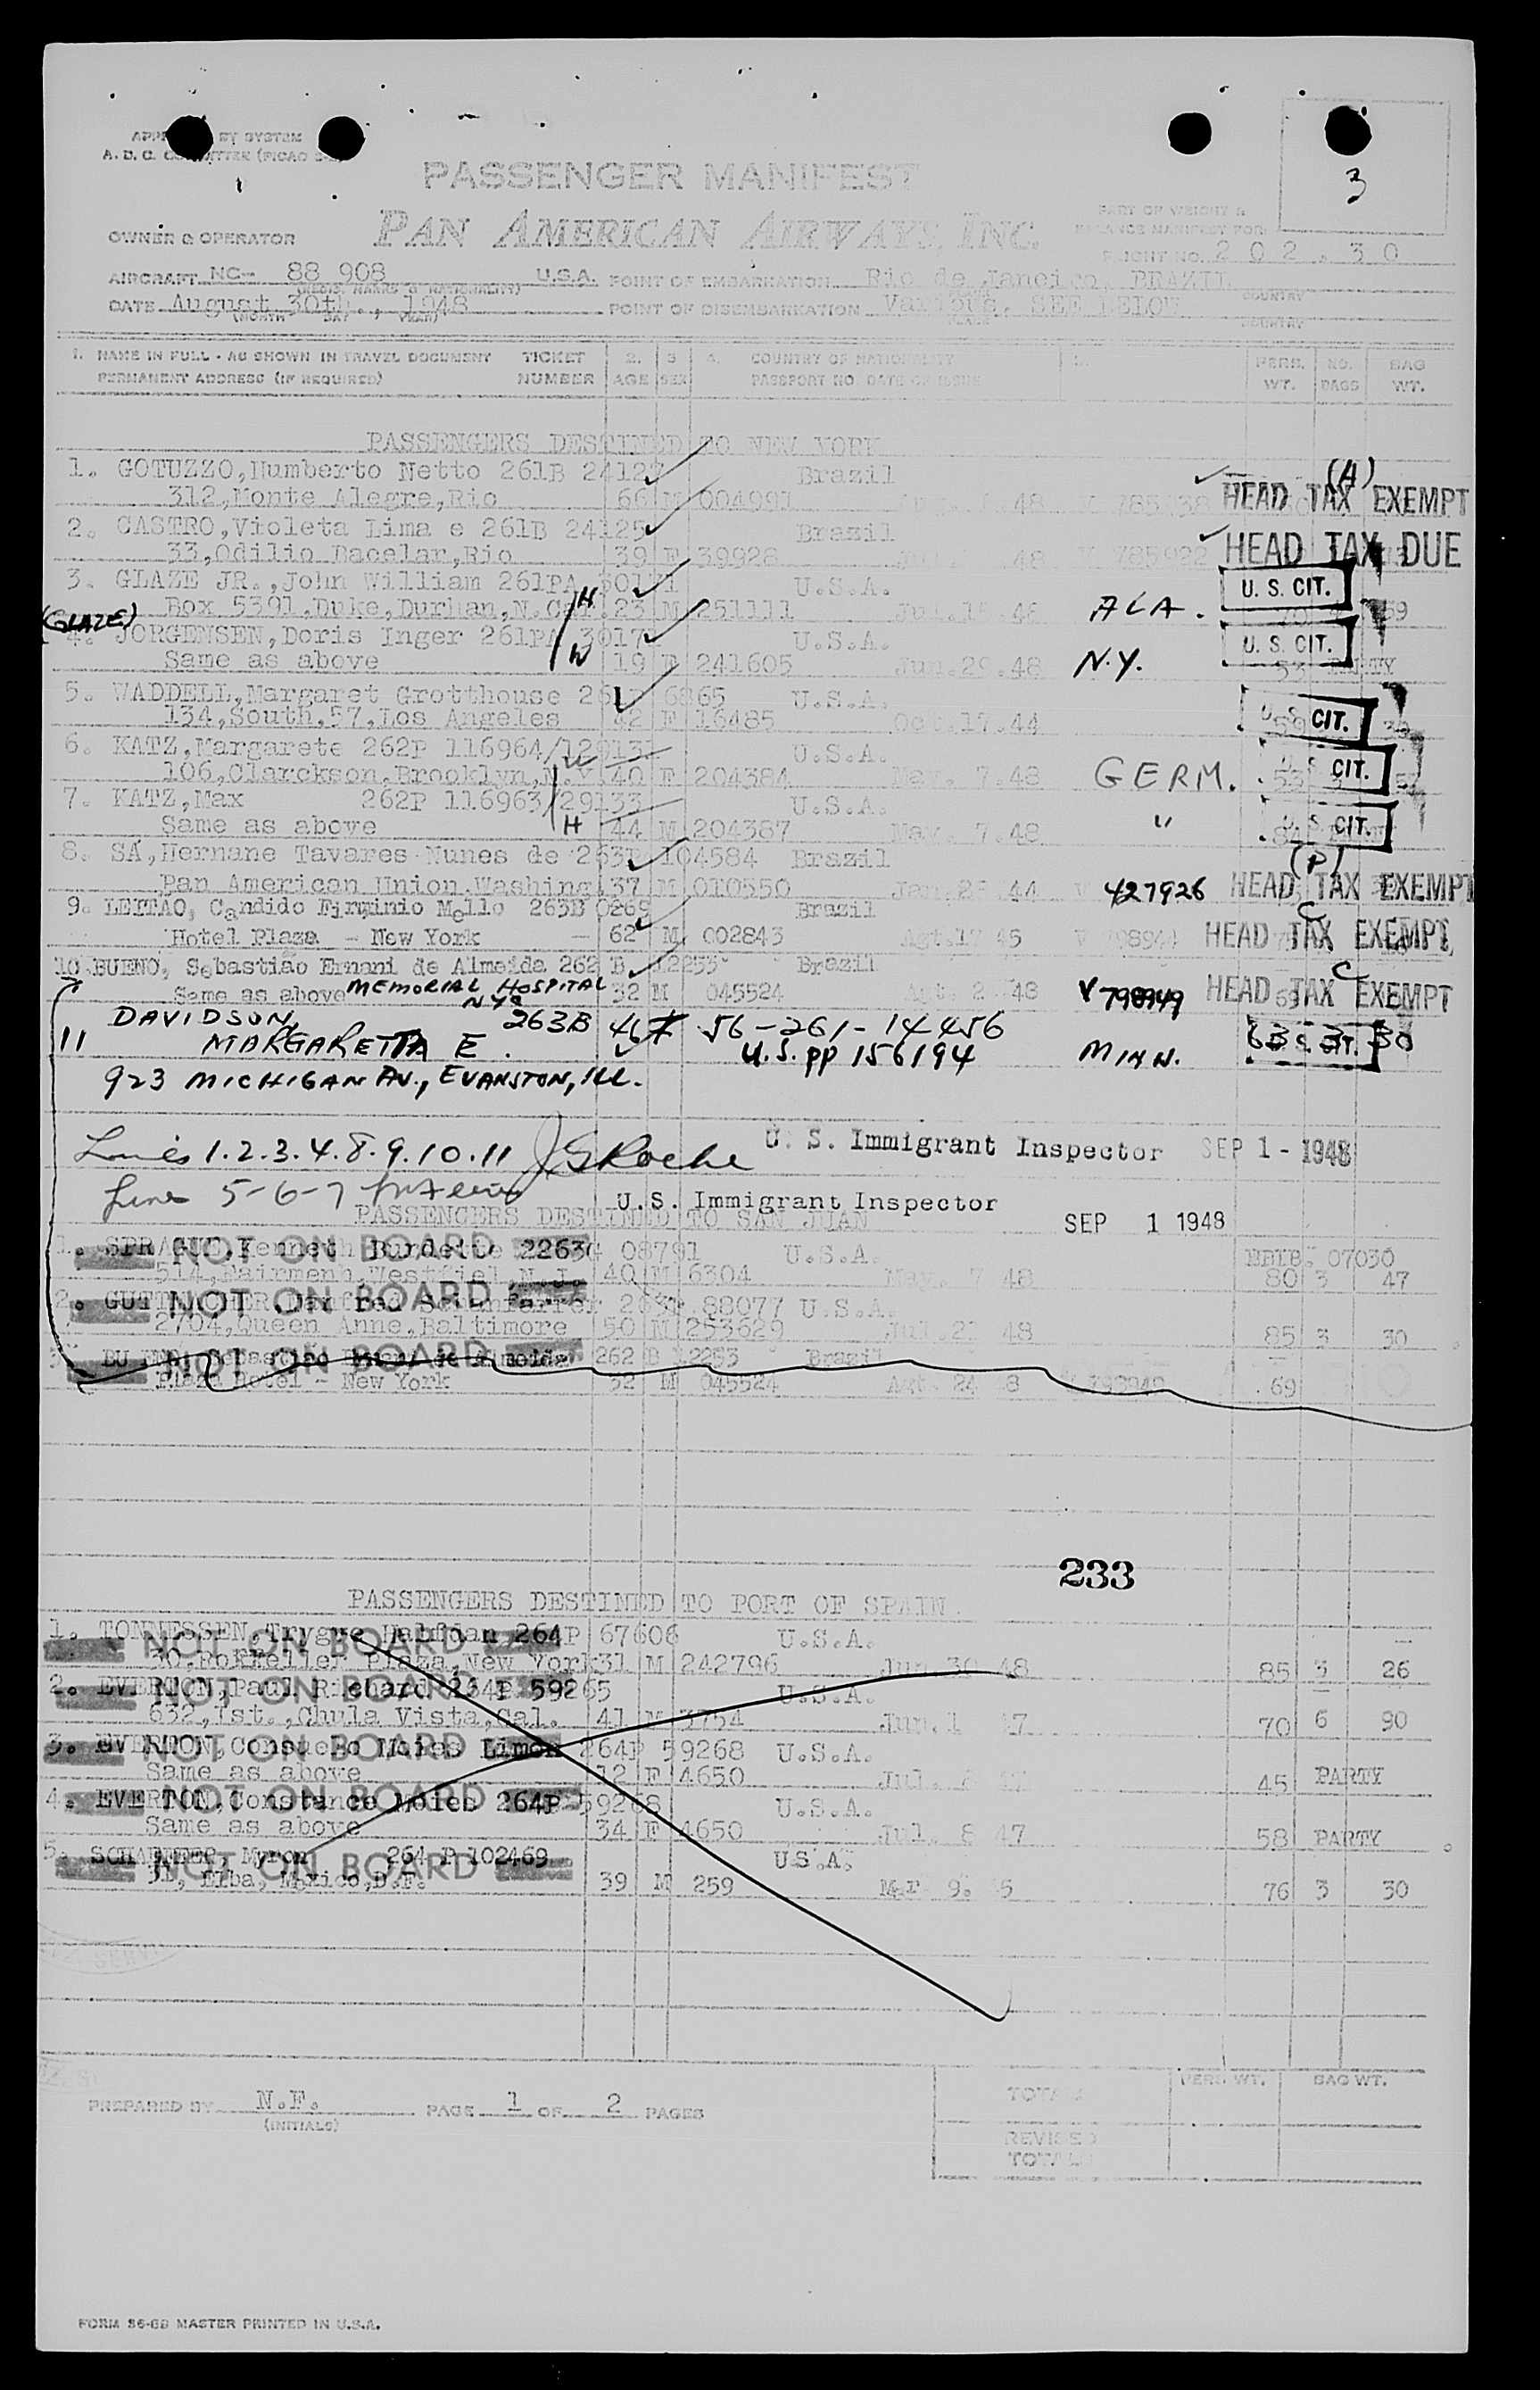 3
PASSENGER MANIFEST
PAN AMERICAN AIRWAYS, INC.
OWNER & OPERATOR
FLIGHT NO. 202 . 30
AIRCRAFT NC- 88 908 U.S.A. POINT OF EMBARKATION Rio de Janeiro, BRAZIL
DATE August 30th., 1948 POINT OF DISEMBARKATION Various. SEE BELOW
(MONTH DAY YEAR) PLACE COUNTRY
1. NAME IN FULL - AS SHOWN IN TRAVEL DOCUMENT TICKET 2. 3 4. COUNTRY OF NATIONALITY PERS. NO. BAG
PERMANENT ADDRESS (IF REQUIRED) NUMBER AGE SEX PASSPORT NO. DATE OF ISSUE WT. BAGS WT.
PASSENGERS DESTINED TO NEW YORK
1. GOTUZZO,Humberto Netto 261B 24127 Brazil (A)
312,Monte Alegre,Rio 66 M 004991 48 HEAD TAX EXEMPT
2. CASTRO,Violeta Lima e 261B 24125 Brazil
33,Odilio Bacelar,Rio 39 F 39928 48 V 785922 HEAD TAX DUE
3. GLAZE JR.,John William 261PA U.S.A. U. S. CIT.
Box 5391,Duke,Durham,N.Car. H 23 M 251111 48 ALA. 59
(GLAZE)
4. JORGENSEN,Doris Inger 261PA 3017 U.S.A. U. S. CIT.
Same as above W 19 F 241605 Jun.29.48 N.Y. 53 PARTY
5. WADDELL,Margaret Grotthouse U.S.A.
134,South,57,Los Angeles 42 F 16485 Oct.17.44 CIT.
6. KATZ,Margarete 262P 116964/ U.S.A.
106,Clarckson,Brooklyn,N.Y. 40 F 204384 May. 7.48 GERM. 53 CIT.
7. KATZ,Max 262P 116963/29133 U.S.A.
Same as above H 44 M 204387 May. 7.48 " CIT.
8. SÁ,Hernane Tavares Nunes de 104584 Brazil (P)
Pan American Union,Washing. 37 M 010550 44 V 427926 HEAD TAX EXEMPT
9. LEITÃO, Candido Firminio Mello 263B Brazil C
Hotel Plaza - New York 62 M 002843 Agt.17 45 HEAD TAX EXEMPT
10 BUENO, Sebastião Ernani de Almeida 262 B 12253 Brazil C
Same as above MEMORIAL HOSPITAL NYC 32 M 045524 48 V 798949 HEAD TAX EXEMPT
11 DAVIDSON, MARGARETTA E. 263B 46 F 56-261-14456 63 3 30
U.S. PP 156194 MINN.
923 MICHIGAN AV., EVANSTON, ILL.
Lines 1.2.3.4.8.9.10.11 JGRoche U. S. Immigrant Inspector SEP 1 - 1948
Lines 5-6-7 U.S. Immigrant Inspector SEP 1 1948
PASSENGERS DESTINED TO SAN JUAN
1. SPRAGUE,Kenneth Burdette 08791 U.S.A. 07030
NOT ON BOARD
514,Fairmenh,Westfiel,N.J. 40 M 6304 May. 7 48 80 3 47
2. NOT ON BOARD 88077 U.S.A.
2704,Queen Anne,Baltimore 50 M 253629 48 85 3 30
NOT ON BOARD 262 B 2253 Brazil
Plaza Hotel - New York 32 M 045524 Agt. 24 8 69
233
PASSENGERS DESTINED TO PORT OF SPAIN
1. TONNESSEN,Trygve Halfdan 264P 67606 U.S.A.
NOT ON BOARD
30,Rokfeller Plaza,New York 31 M 242796 Jun 30 48 85 3 26
2. EVERTON,Paul Richard 264P 59265 U.S.A.
NOT ON BOARD
632,1st.,Chula Vista,Cal. 41 M 3754 Jun.1 47 70 6 90
3. EVERTON,Consuelo Moies Limon 264P 59268 U.S.A.
NOT ON BOARD
Same as above 12 F 4650 Jul. 45 PARTY
4. EVERTON,Constance Moies 264P 59268 U.S.A.
NOT ON BOARD
Same as above 34 F 4650 Jul. 8 47 58 PARTY
5. Myron 264 P 102469 U.S.A.
NOT ON BOARD
Elba, Mexico,D.F. 39 M 259 Mar 9. 5 76 3 30
PREPARED BY N.F. PAGE 1 OF 2 PAGES
(INITIALS)
TOTALS PERS WT. BAG WT.
REVISED
TOTALS
FORM 36-6B MASTER PRINTED IN U.S.A.